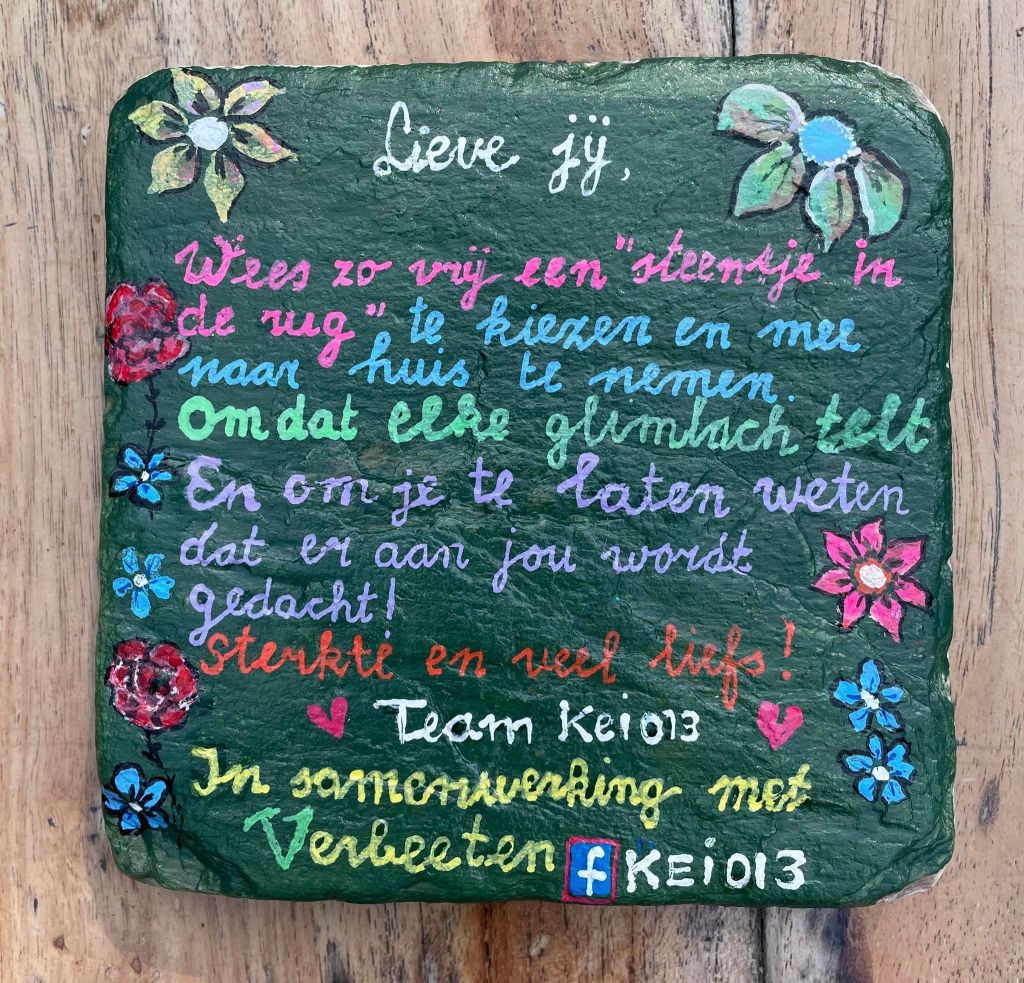 Lieve jij,
Wees zo vrij een "steentje in
de rug" te kiezen en mee
naar huis te nemen.
Omdat elke glimlach telt
En om je te laten weten
dat er aan jou wordt
gedacht!
Sterkte en veel liefs!
Team Kei013
In samenwerking met
Verbeeten f KEi013